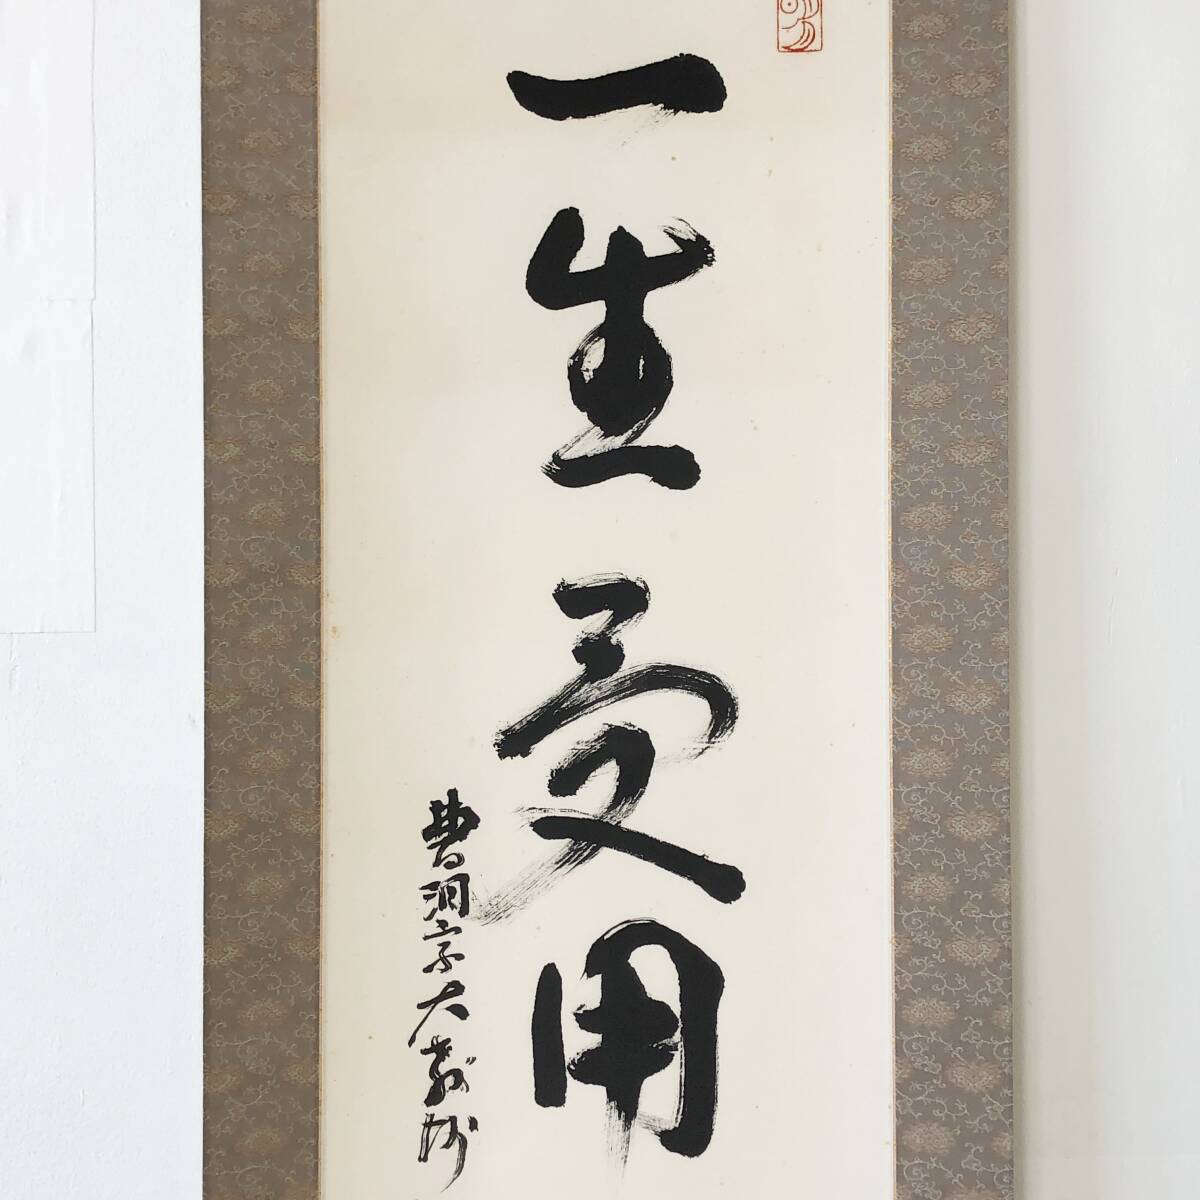 一生受用
曹洞宗大教師